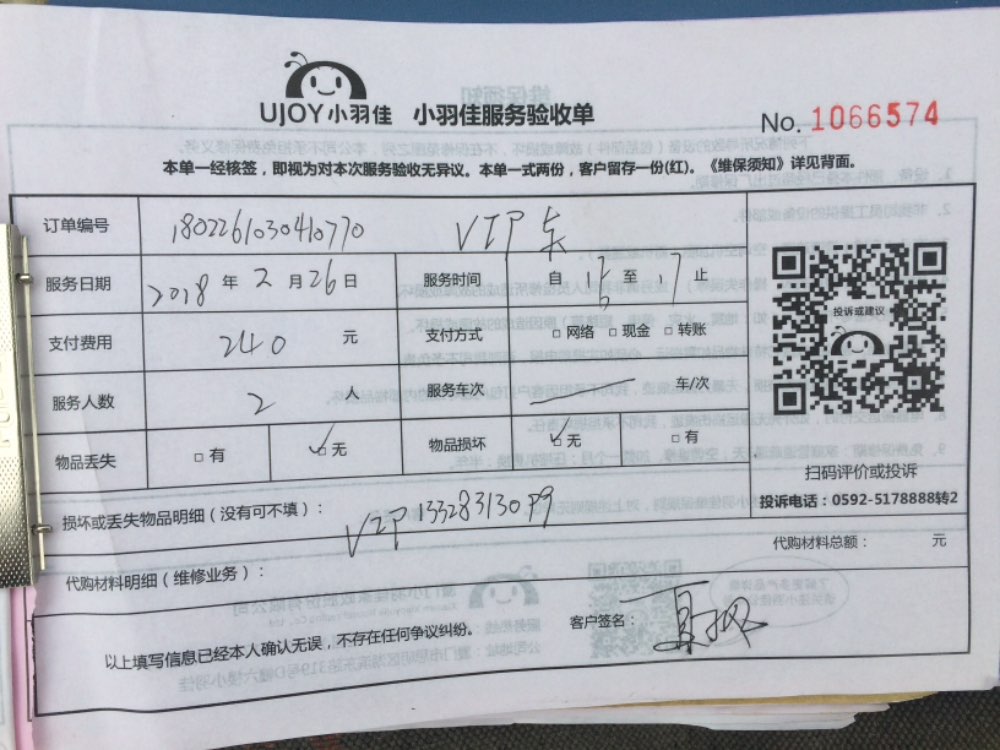 UJOY小羽佳 小羽佳服务验收单
No. 1066574
本单一经核签，即视为对本次服务验收无异议。本单一式两份，客户留存一份(红)。《维保须知》详见背面。
订单编号 1802261030410770 VIP东
服务日期 2018年2月26日 服务时间 自 15 至 17 止
支付费用 240 元 支付方式 □网络 □现金 □转账
投诉或建议
服务人数 2 人 服务车次 车/次
物品丢失 □有 ☑无 物品损坏 ☑无 □有
扫码评价或投诉
投诉电话：0592-5178888转2
损坏或丢失物品明细（没有可不填）： VIP 133283130
代购材料总额： 元
代购材料明细（维修业务）：
客户签名：
以上填写信息已经本人确认无误，不存在任何争议纠纷。